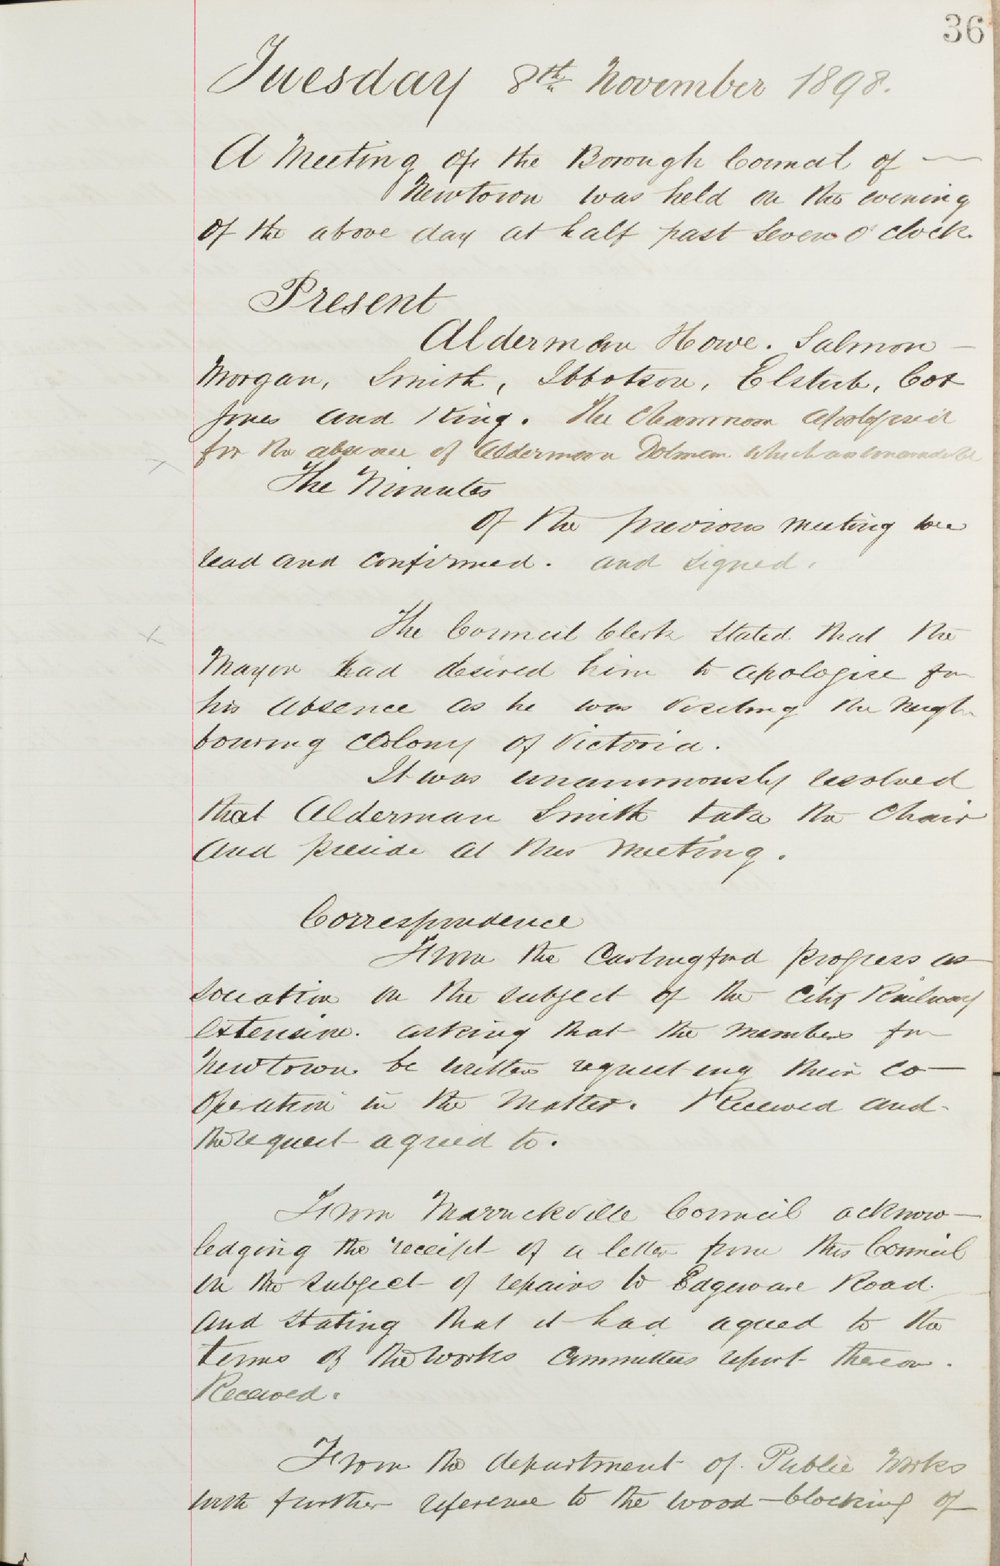 36
Tuesday 8th November 1898.
A Meeting of the Borough Council of —
Newtown was held on the evening
of the above day at half past seven o'clock.
Present
Alderman Howe. Salmon —
Morgan, Smith, Ibbotson, Elstub, Cox
Jones and King. The Chairman apologised
for the absence of Alderman Dolman which was
The Minutes
of the previous meeting were
read and confirmed. and signed.
The Council Clerk stated that the
Mayor had desired him to apologise for
his absence as he was visiting the neigh-
bouring Colony of Victoria.
It was unanimously resolved
that Alderman Smith take the Chair
and preside at this meeting.
Correspondence
From the Carlingford progress as-
sociation on the subject of the City Railway
extension. asking that the members for
Newtown be written requesting their co-
operation in the matter. Received and
the request agreed to.
From Marrickville Council acknow-
ledging the receipt of a letter from this Council
on the subject of repairs to Edgeware Road.
and stating that it had agreed to the
terms of the Works Committees report thereon.
Received.
From the department of Public Works
with further reference to the wood-blocking of